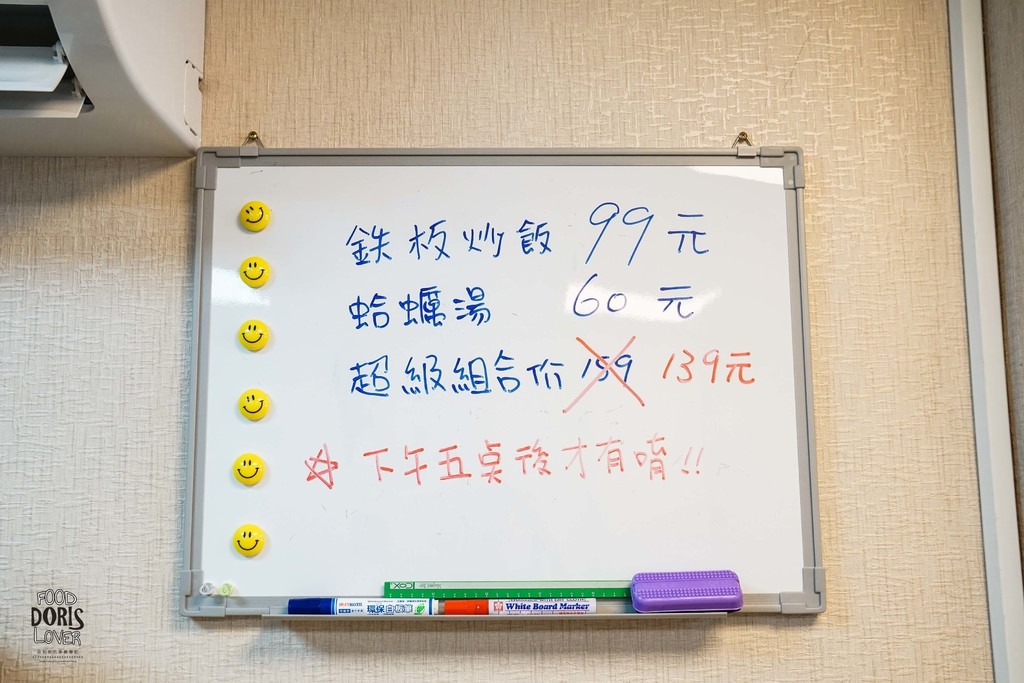 鉄板炒飯 99元
蛤蠣湯 60元
超級組合价 159 139元
☆下午五桌後才有唷!!
COX
環保白板筆
White Board Marker
FOOD
DORIS
LOVER